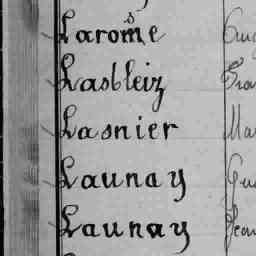 Larosme
Lasbleiz
Lasnier Ma
Launay
Launay Jean